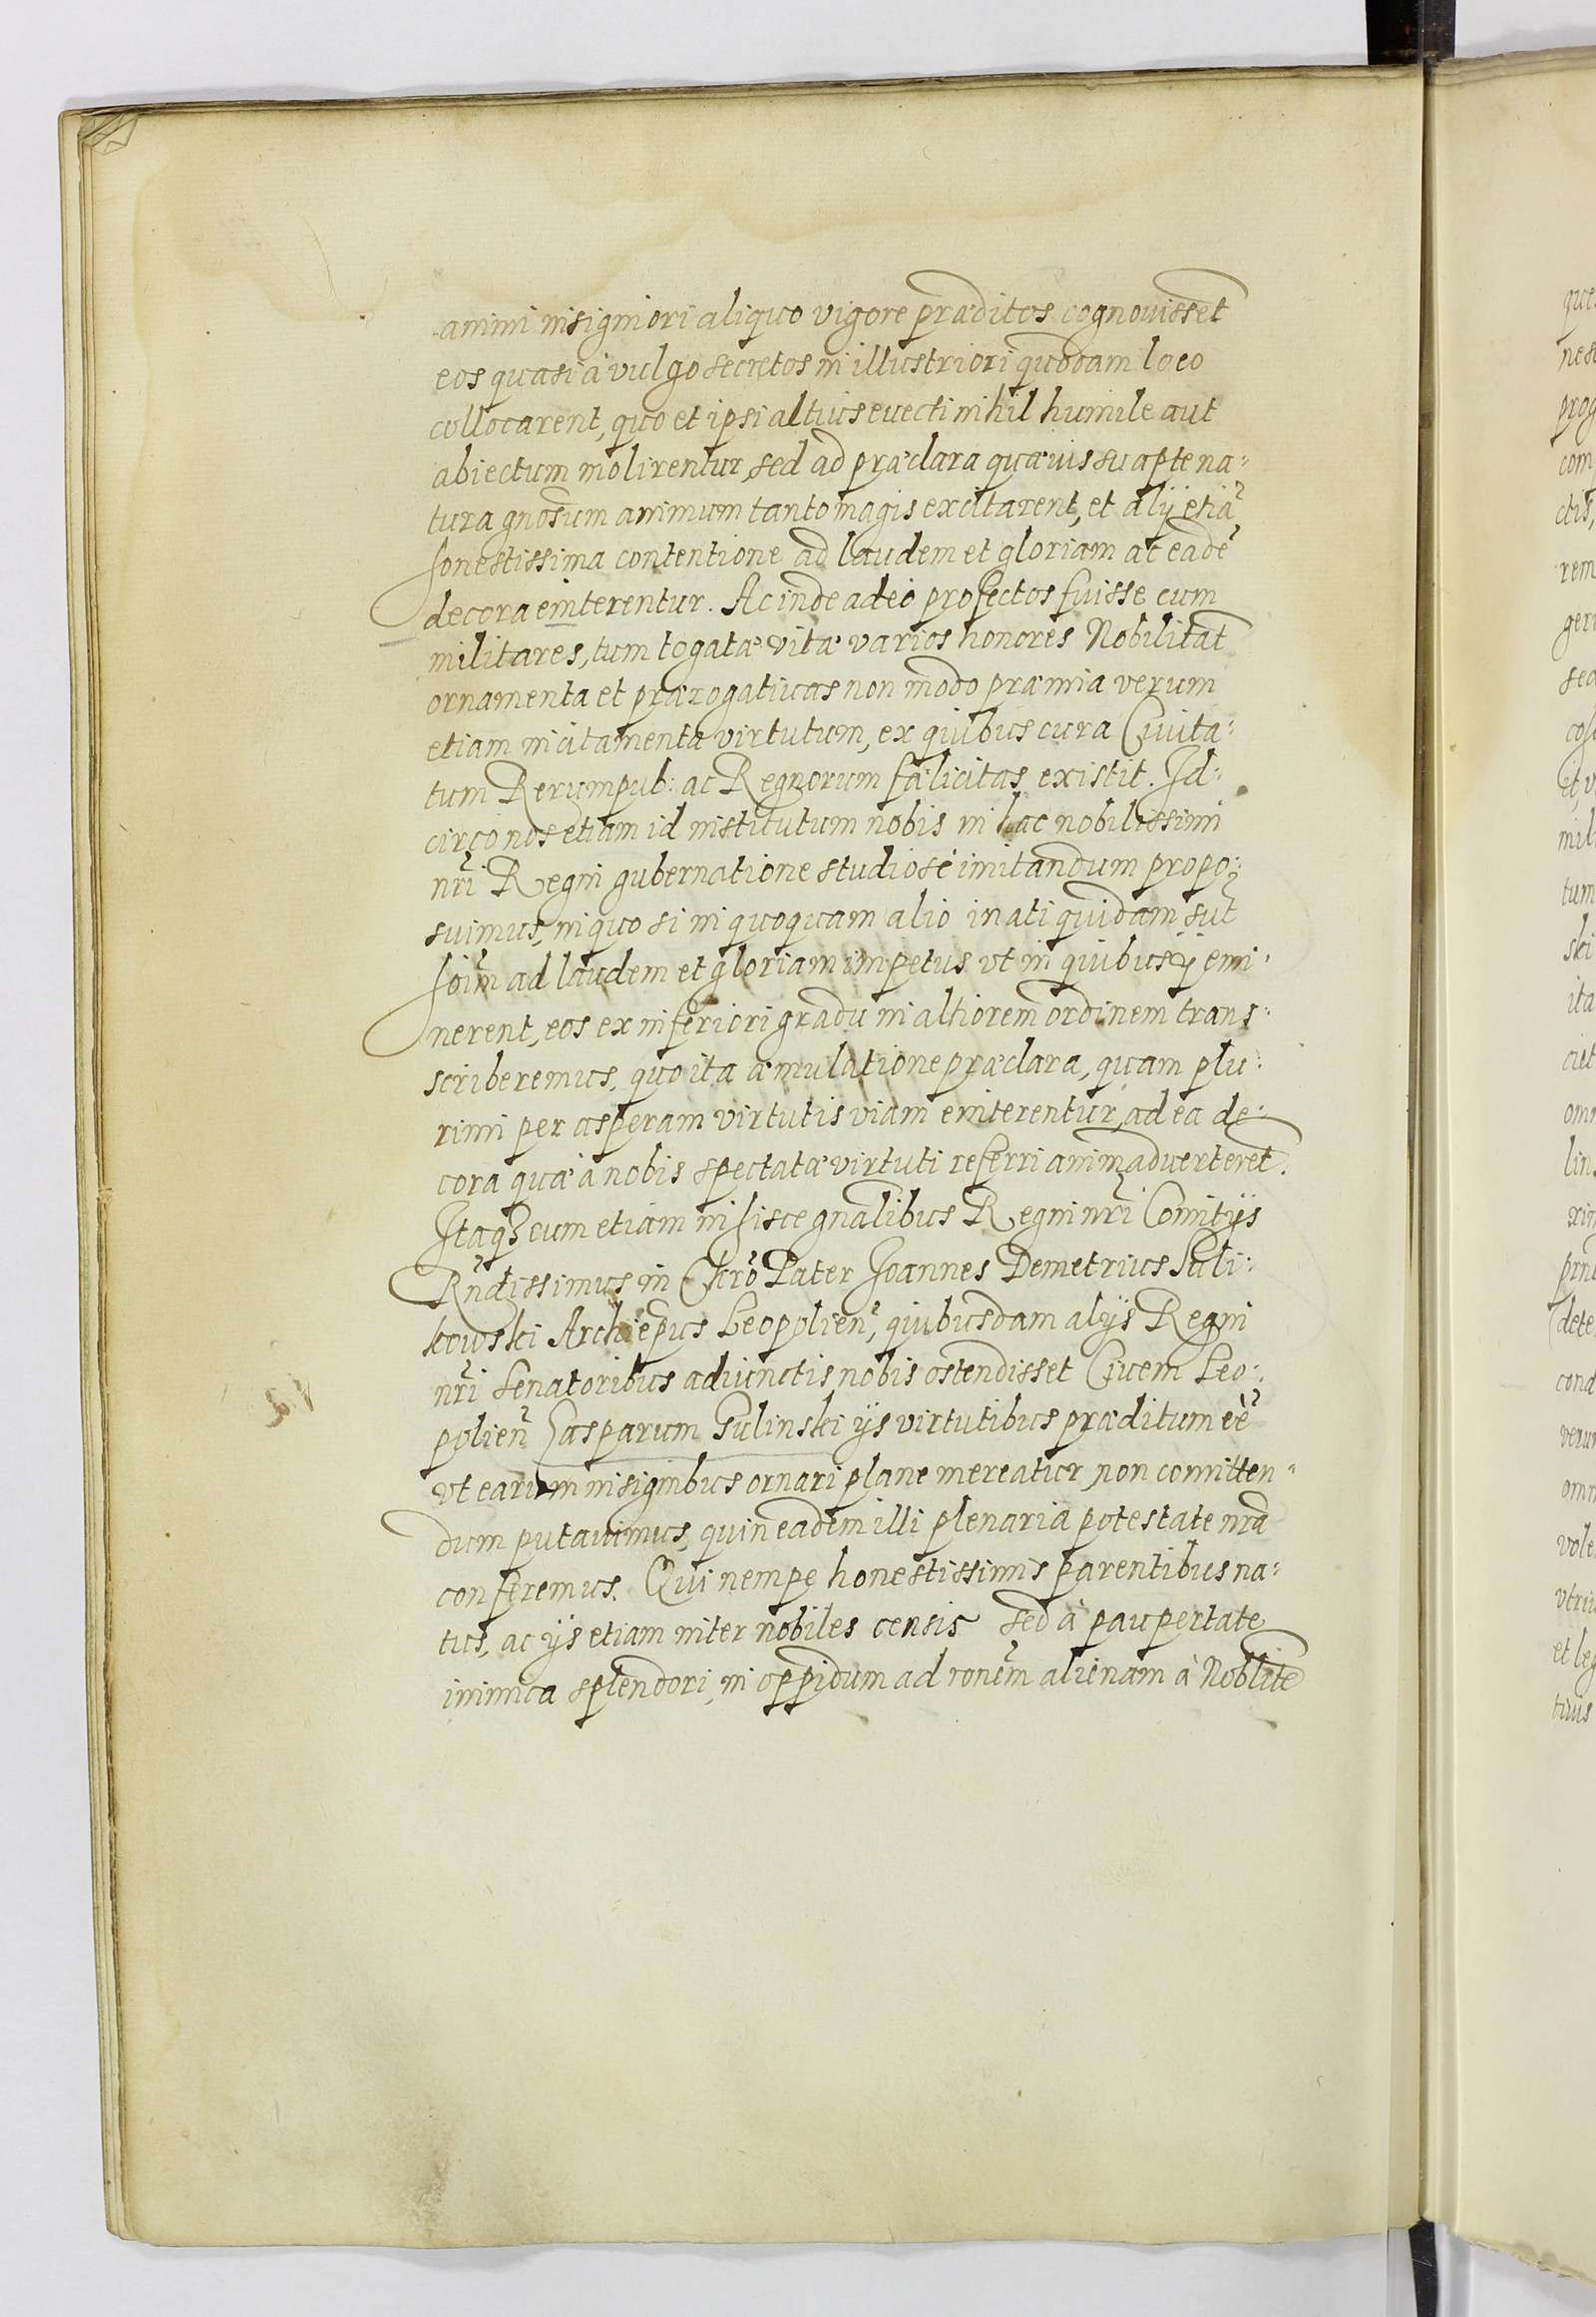 animi insigniori aliquo vigore præditos cognouisset
eos quasi à vulgo secretos in illustriori quodam loco
collocarent, quo et ipsi altius euecti nihil humile aut
abiectum molirentur, sed ad præclara quæuis suapte na:
tura gnosum animum tanto magis excitarent, et alÿ etiã
honestissima contentione ad laudem et gloriam ac eadẽ
decora eniterentur. Ac inde adeò profectos fuisse cum
militares, tum togatæ vitæ varios honores Nobilitat
ornamenta et prærogatiuas non modo præmia verum
etiam incitamenta virtutum, ex quibus cura Ciuita:
tum Rerumpub: ac Regnorum fælicitas existit. Id:
circo nos etiam id institutum nobis in hac nobilissimi
nr̃i Regni gubernatione studiosè imitandum propo:
suimus, in quo si in quoquam alio innati quidam sũt
hoĩm ad laudem et gloriam impetus vt in quibus ij emi:
nerent, eos ex inferiori gradu in altiorem ordinem trans:
scriberemus, quo ita æmulatione præclara, quam plu:
rimi per asperam virtutis viam eniterentur, ad ea de:
cora quæ à nobis spectatæ virtuti referri animaduerteret.
Itaqȝ cum etiam in hisce gnalibus Regni nr̃i Comitÿs
Rñdissimus in Chro Pater Joannes Demetrius Suli:
kowski Archiepus Leopolieñ, quibusdam alÿs Regni
nr̃i Senatoribus adiunctis nobis ostendisset Ciuem Leo:
polieñ Gasparum Gulinski ÿs virtutibus præditum eẽ
vt earum insignibus ornari plane mereatur, non comitten:
dum putauimus, quin eadem illi plenaria potestate nrã
conferemus. Qui nempe honestissimis parentibus na:
tus, ac ÿs etiam inter nobiles censis sed à paupertate
inimica splendori, in oppidum ad ronẽm alienam à Noblite